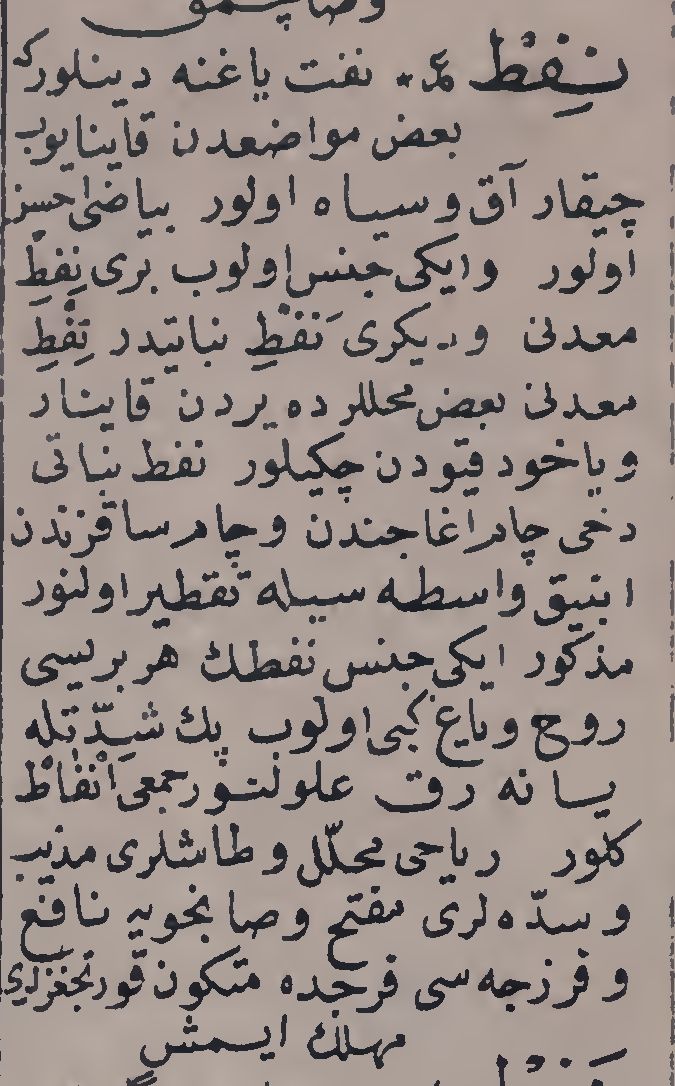 نِفِطْ ع٠ نفت ياغنه دينلور كه
بعض مواضعدن قاينايوب
چيقار آق و سياه اولور بياضى احسن
اولور وايكى جنس اولوب برى نِفطِ
معدنى و ديكرى نفطِ نباتيدر نِفْطِ
معدنى بعض محللرده يردن قاينار
وياخود قيودن چكيلور نفط نباتى
دخى چام اغاجندن و چام ساقزندن
انبيق واسطه سيله تقطير اولنور
مذكور ايكى جنس نفطك هر بريسى
روح وياغ كبى اولوب پك شدّتله
يانه رق علولنور جمعى انفاط
كلور رياحى محلّل و طاشلرى مذيب
و سدّه لرى مفتح و صانجويه نافع
و فرزجه سى فرجده متكون قورتجغزلرى
مهلك ايمش